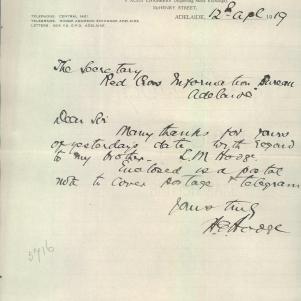 McHENRY STREET,
ADELAIDE, 12th Apl 1919
TELEPHONE: CENTRAL 1461
ADELAIDE
The Secretary
Red Cross Information Bureau
Adelaide
Dear Sir
Many thanks for yours
of yesterdays date with regard
to my brother - L. M Hodge.
Enclosed is a postal
note to cover postage & telegram
Yours truly
H E Hodge
5716